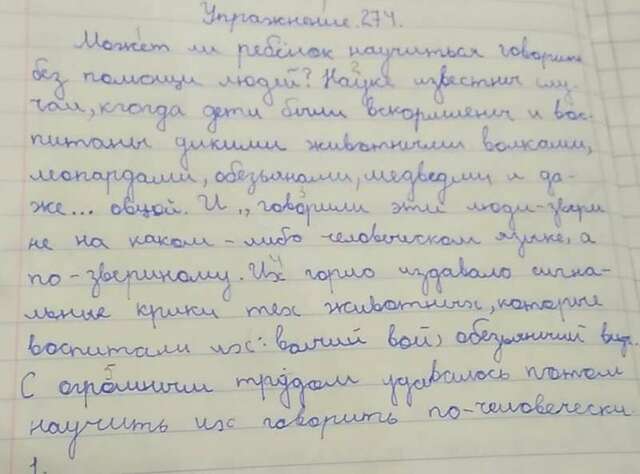 Упражнение 274.
Может ли ребёнок научиться говорить
без помощи людей? Науке известны слу-
чаи, когда дети были вскормлены и вос-
питаны дикими животными волками,
леопардами, обезьянами, медведями и да-
же... овцой. И „говорили эти люди-звери
не на каком-либо человеческом языке, а
по-звериному. Их горло издавало сигна-
льные крики тех животных, которые
воспитали их: волчий вой, обезьяний визг.
С огромным трудом удавалось потом
научить их говорить по-человечески
1.